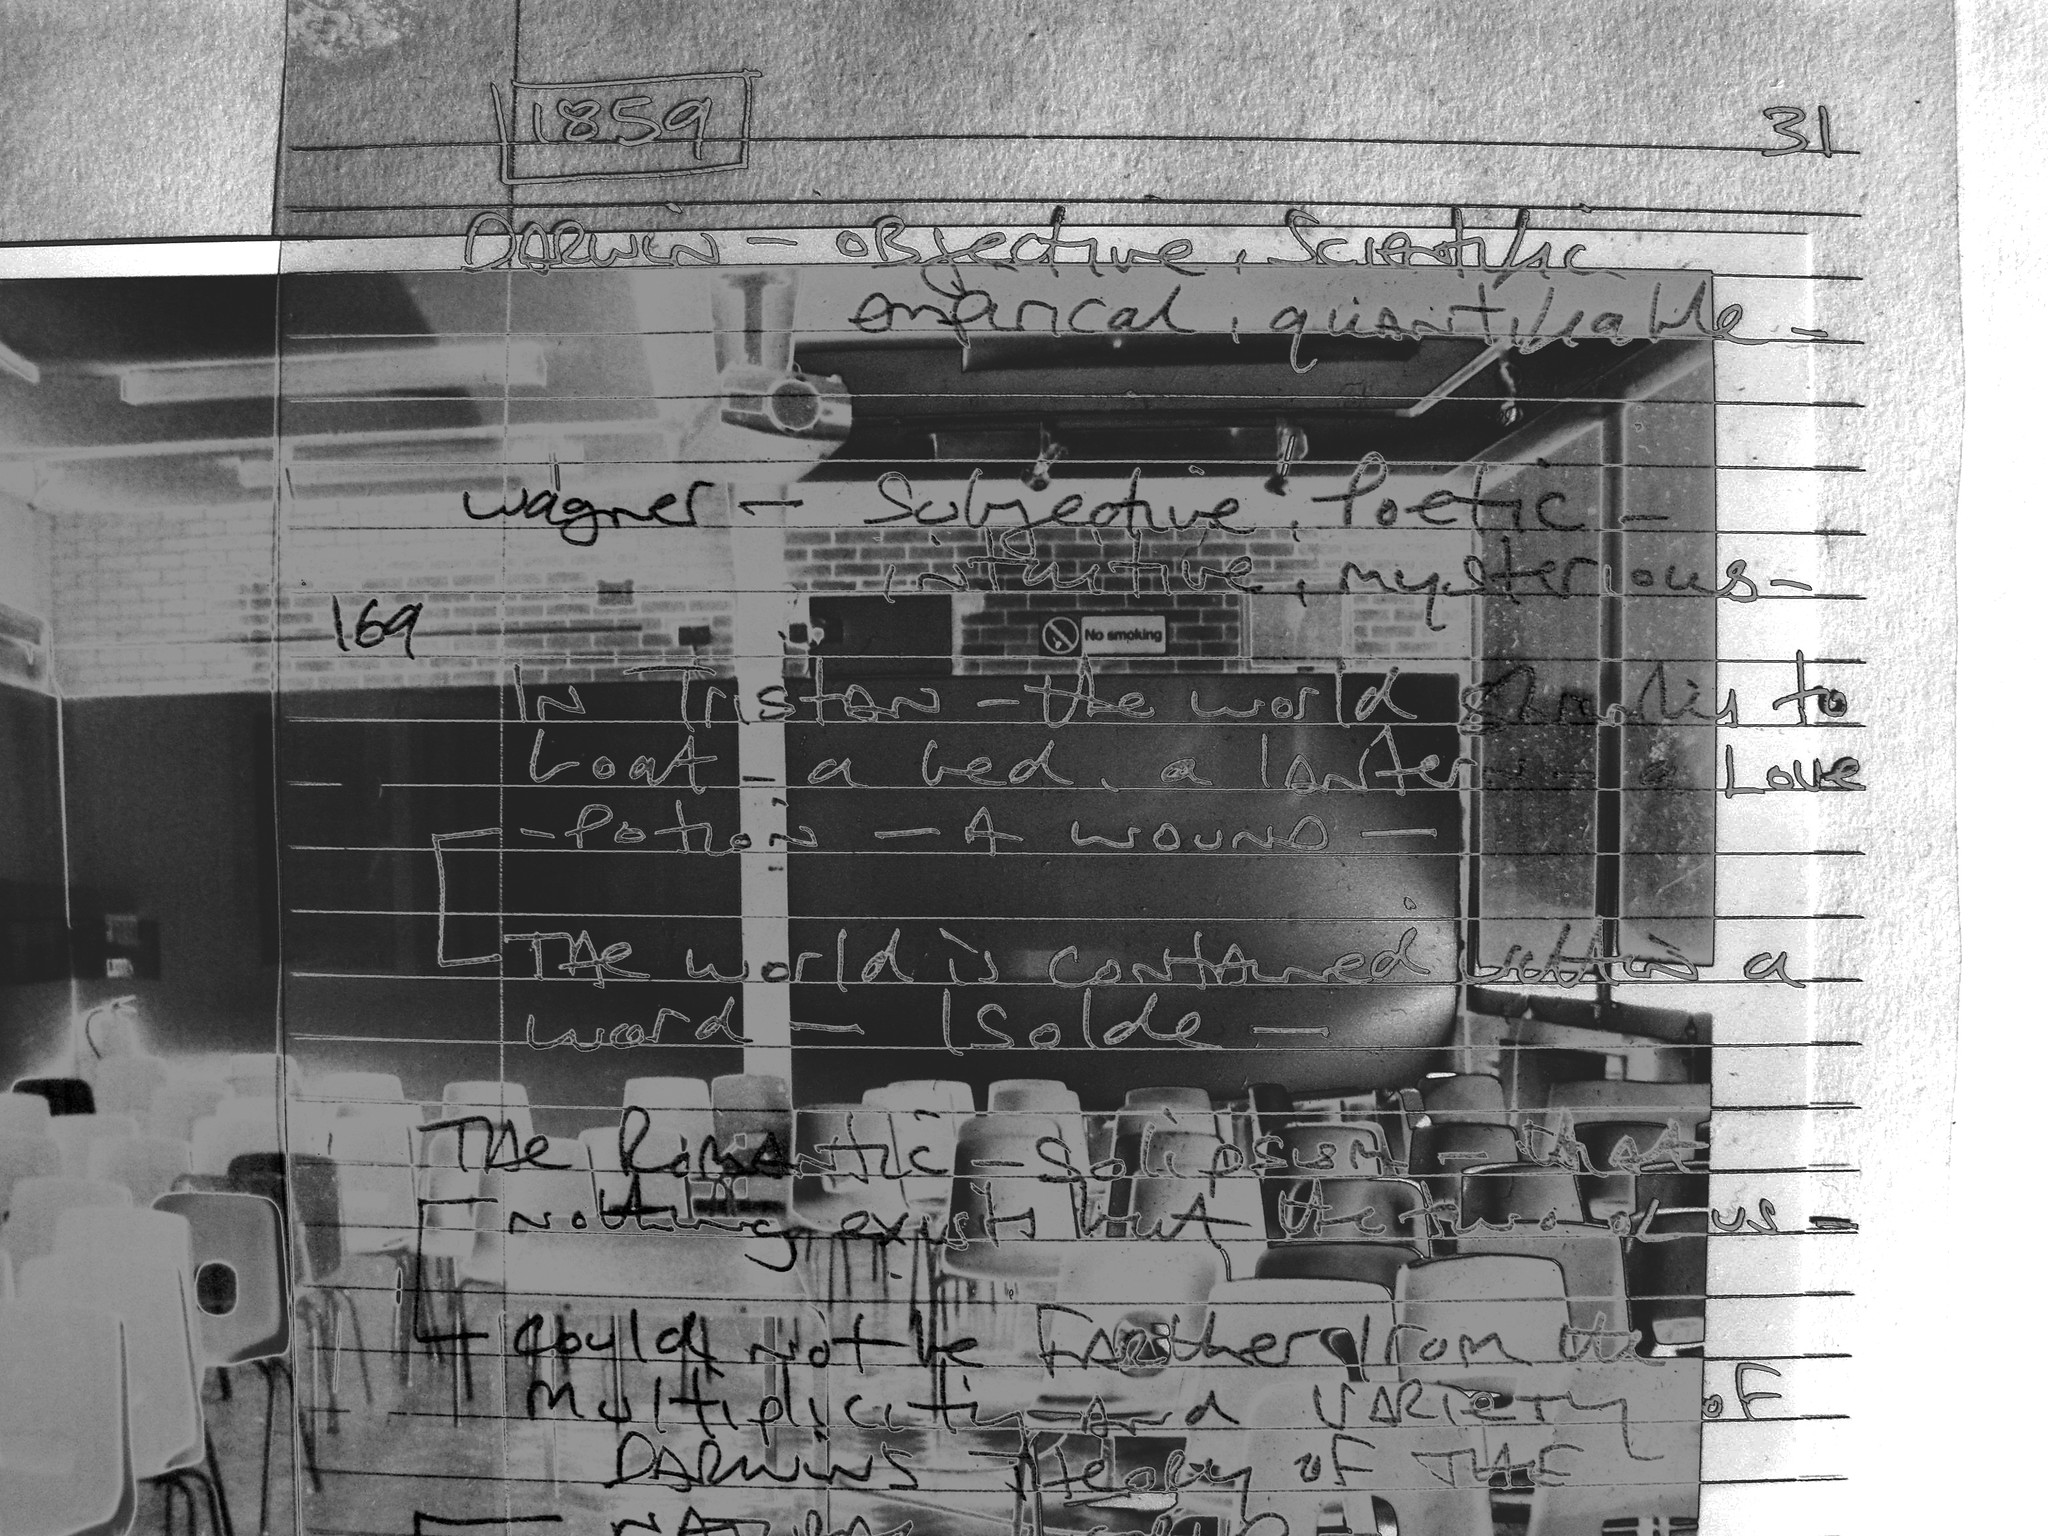 1859
31
DARWIN – OBjective, Scientific
empirical, quantifiable –
Wagner – Subjective, Poetic –
intuitive, mysterious –
169
No smoking
In Tristan – the world shrinks to
boat – a bed, a lantern – a Love
– Potion – A WOUND –
The world is contained within a
word – Isolde –
THe Romantic – Solipsism – that
nothing exists but the two of us –
could not be FArther from the
Multiplicity and VARIETY OF
DARWINS THeory OF THE